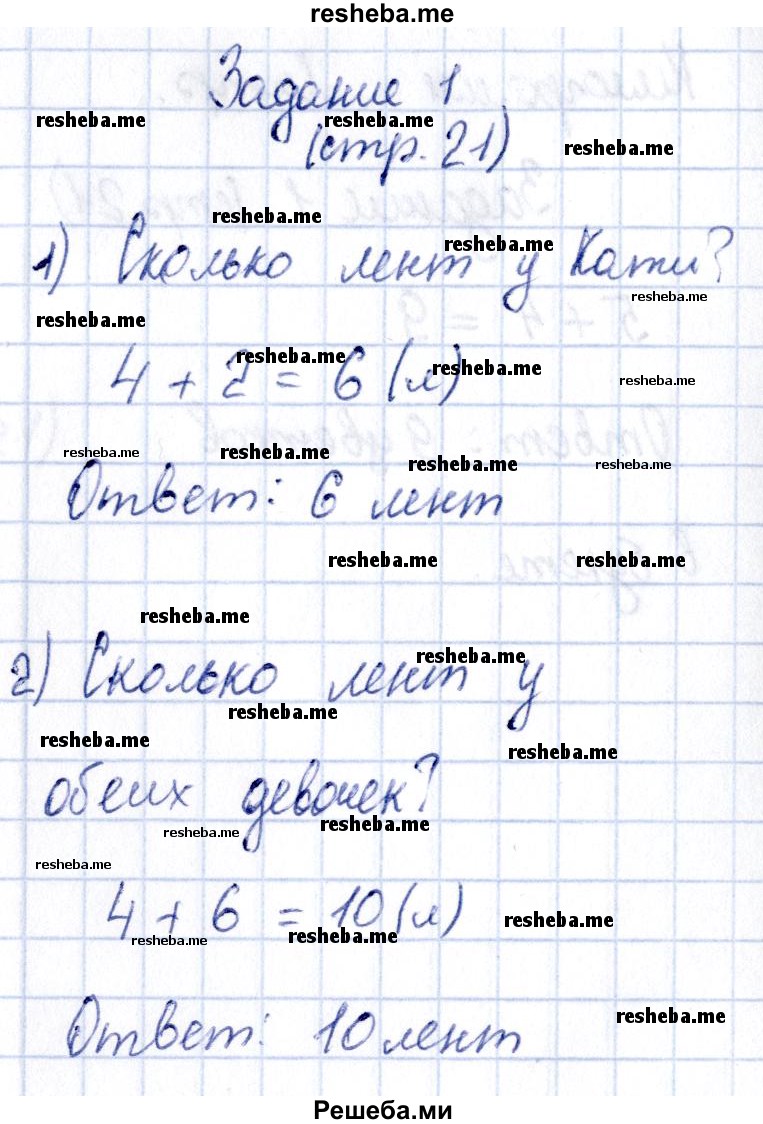 resheba.me
Задание 1
resheba.me resheba.me
(стр. 21) resheba.me
resheba.me
1) Сколько лент у Кати?
resheba.me
resheba.me
resheba.me
4 + 2 = 6 (л)
resheba.me resheba.me resheba.me
resheba.me resheba.me resheba.me resheba.me
Ответ: 6 лент
resheba.me resheba.me
resheba.me
2) Сколько лент у
resheba.me
resheba.me
resheba.me resheba.me
обеих девочек?
resheba.me resheba.me
resheba.me
4 + 6 = 10 (л)
resheba.me
resheba.me resheba.me
resheba.me
Ответ: 10 лент
Решеба.ми